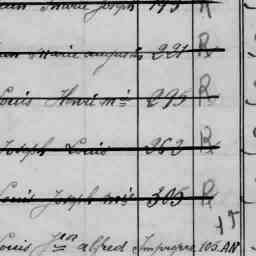 Jean Marie Joseph 193 R
Jean Marie Auguste 221 R
Louis Henri Mie 295 R
Joseph Louis 263 R
Louis Joseph Mie 305 R
15
Louis Jean Alfred Impropre 105. AN